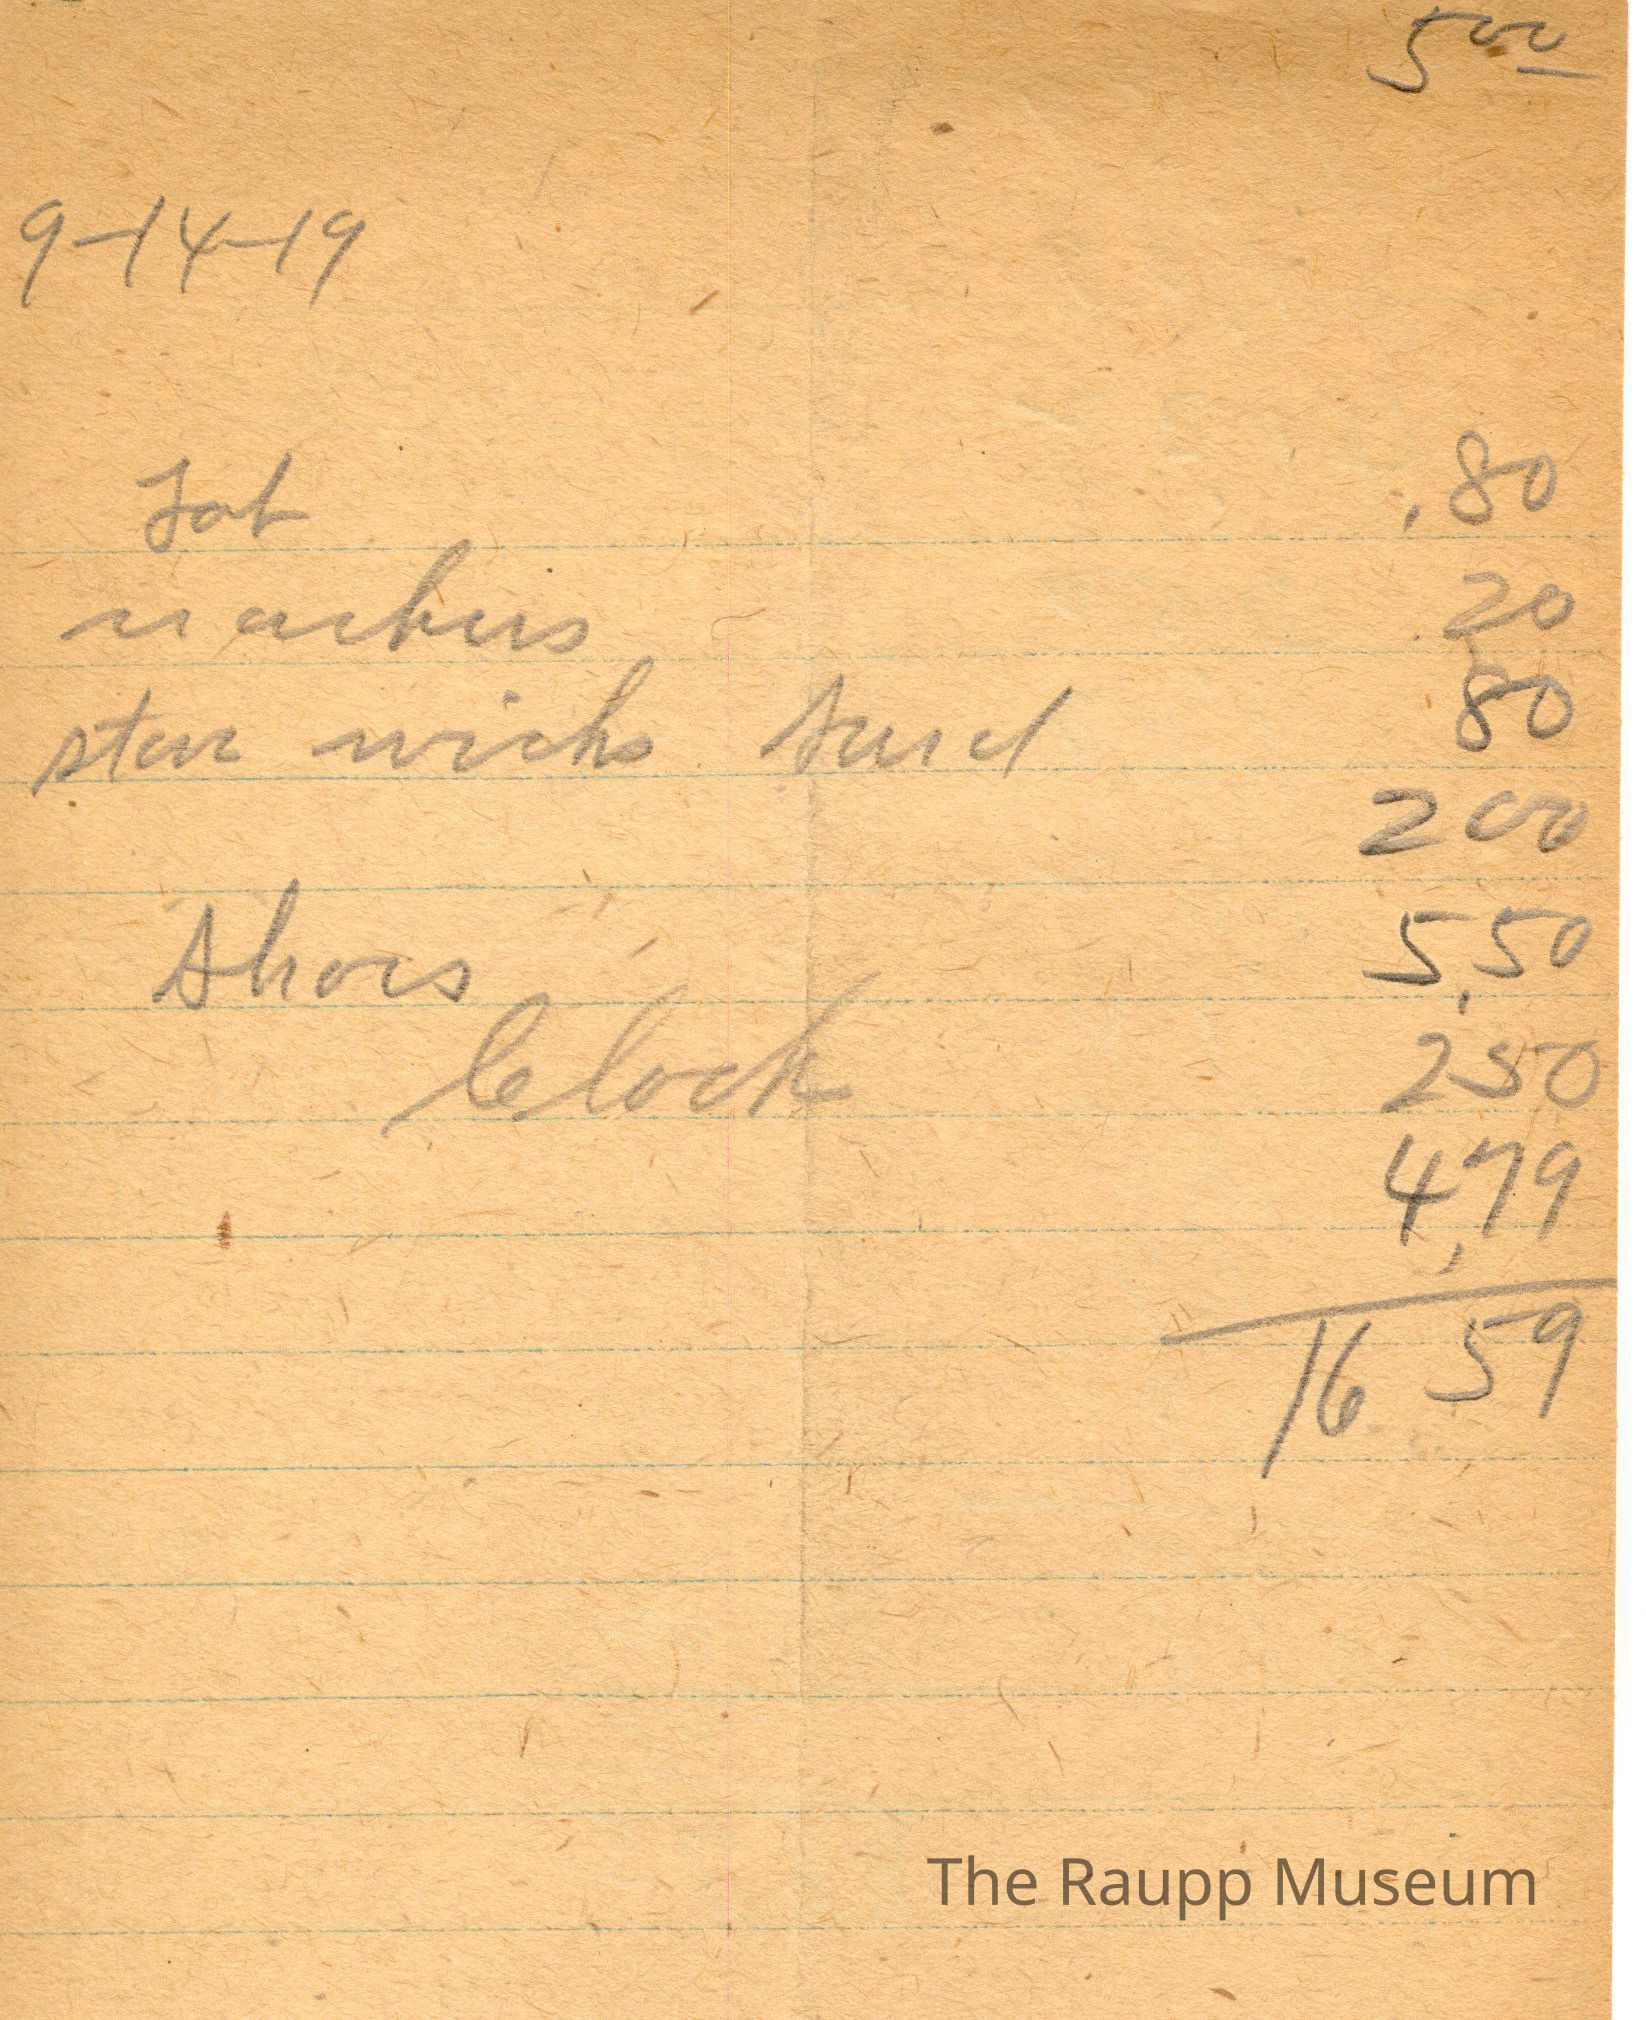 5 00
9-14-19
.80
20
stove wicks 80
2 00
Shoes 5,50
Clock 2 50
4,79
16 59
The Raupp Museum